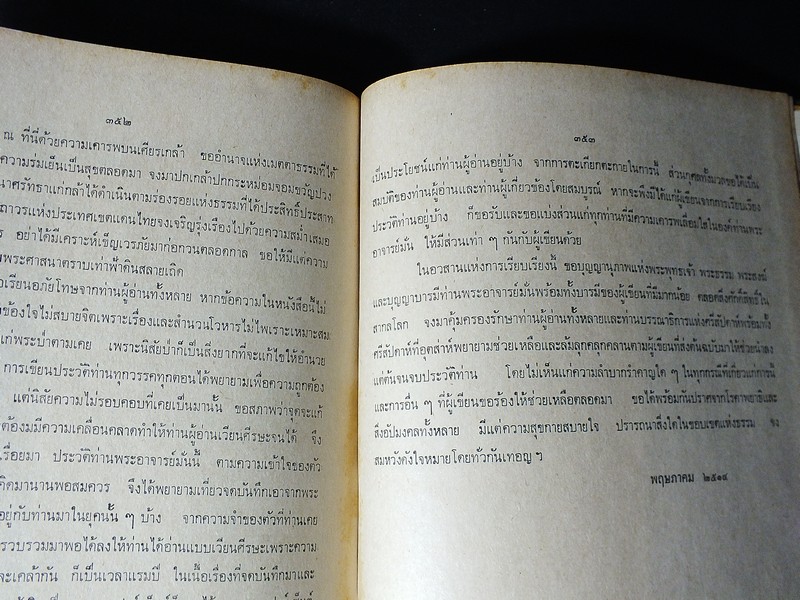 ๓๕๒
ณ ที่นี่ด้วยความเคารพบนเศียรเกล้า ขออำนาจแห่งเมตตาธรรมที่ได้
ความร่มเย็นเป็นสุขตลอดมา จงมาปกเกล้าปกกระหม่อมจอมขวัญปวง
นาศรัทธาแก่กล้าได้ดำเนินตามร่องรอยแห่งธรรมที่ได้ประสิทธิ์ประสาท
ถาวรแห่งประเทศเขตแดนไทยจงเจริญรุ่งเรืองไปด้วยความสม่ำเสมอ
อย่าได้มีเคราะห์เข็ญเวรภัยมาก่อกวนตลอดกาล ขอให้มีแต่ความ
พระศาสนาตราบเท่าฟ้าดินสลายเถิด
เรียนอภัยโทษจากท่านผู้อ่านทั้งหลาย หากข้อความในหนังสือนี้ไม่
ข้องใจไม่สบายจิตเพราะเรื่องและสำนวนโวหารไม่ไพเราะเหมาะสม
แก่พระป่าตามเคย เพราะนิสัยป่าก็เป็นสิ่งยากที่จะแก้ไขให้อำนวย
การเขียนประวัติท่านทุกวรรคทุกตอนได้พยายามเพื่อความถูกต้อง
แต่นิสัยความไม่รอบคอบที่เคยเป็นมานั้น ขอสภาพว่าจุดจะแก้
ต้องมีความเคลื่อนคลาดทำให้ท่านผู้อ่านเวียนศีรษะจนได้ จึง
เรื่อยมา ประวัติท่านพระอาจารย์มั่นนี้ ตามความเข้าใจของตัว
คิดมานานพอสมควร จึงได้พยายามเที่ยวจดบันทึกเอาจากพระ
อยู่กับท่านมาในยุคนั้น ๆ บ้าง จากความจำของตัวที่ท่านเคย
รวบรวมมาพอได้ลงให้ท่านได้อ่านแบบเวียนศีรษะเพราะความ
ละเคล้ากัน ก็เป็นเวลาแรมปี ในเนื้อเรื่องที่จดบันทึกมาและ
๓๕๓
เป็นประโยชน์แก่ท่านผู้อ่านอยู่บ้าง จากการตะเกียกตะกายในการนี้ ส่วนกุศลทั้งมวลขอได้เป็น
สมบัติของท่านผู้อ่านและท่านผู้เกี่ยวข้องโดยสมบูรณ์ หากจะพึงมีได้แก่ผู้เขียนจากการเรียบเรียง
ประวัติท่านอยู่บ้าง ก็ขอรับและขอแบ่งส่วนแก่ทุกท่านที่มีความเคารพเลื่อมใสในองค์ท่านพระ
อาจารย์มั่น ให้มีส่วนเท่า ๆ กันกับผู้เขียนด้วย
ในอวสานแห่งการเรียบเรียงนี้ ขอบุญญานุภาพแห่งพระพุทธเจ้า พระธรรม พระสงฆ์
และบุญญาบารมีท่านพระอาจารย์มั่นพร้อมทั้งบารมีของผู้เขียนที่มีมากน้อย ตลอดสิ่งศักดิ์สิทธิ์ใน
สากลโลก จงมาคุ้มครองรักษาท่านผู้อ่านทั้งหลายและท่านบรรณาธิการแห่งศรีสัปดาห์พร้อมทั้ง
ศรีสัปดาห์ที่อุตส่าห์พยายามช่วยเหลือและล้มลุกคลุกคลานตามผู้เขียนที่ส่งต้นฉบับมาให้ช่วยนำลง
แต่ต้นจนจบประวัติท่าน โดยไม่เห็นแก่ความลำบากรำคาญใด ๆ ในทุกกรณีที่เกี่ยวแก่การนี้
และการอื่น ๆ ที่ผู้เขียนขอร้องให้ช่วยเหลือตลอดมา ขอได้พร้อมกันปราศจากโรคาพยาธิและ
สิ่งอัปมงคลทั้งหลาย มีแต่ความสุขกายสบายใจ ปรารถนาสิ่งใดในขอบเขตแห่งธรรม จง
สมหวังดังใจหมายโดยทั่วกันเทอญ ฯ
พฤษภาคม ๒๕๑๙